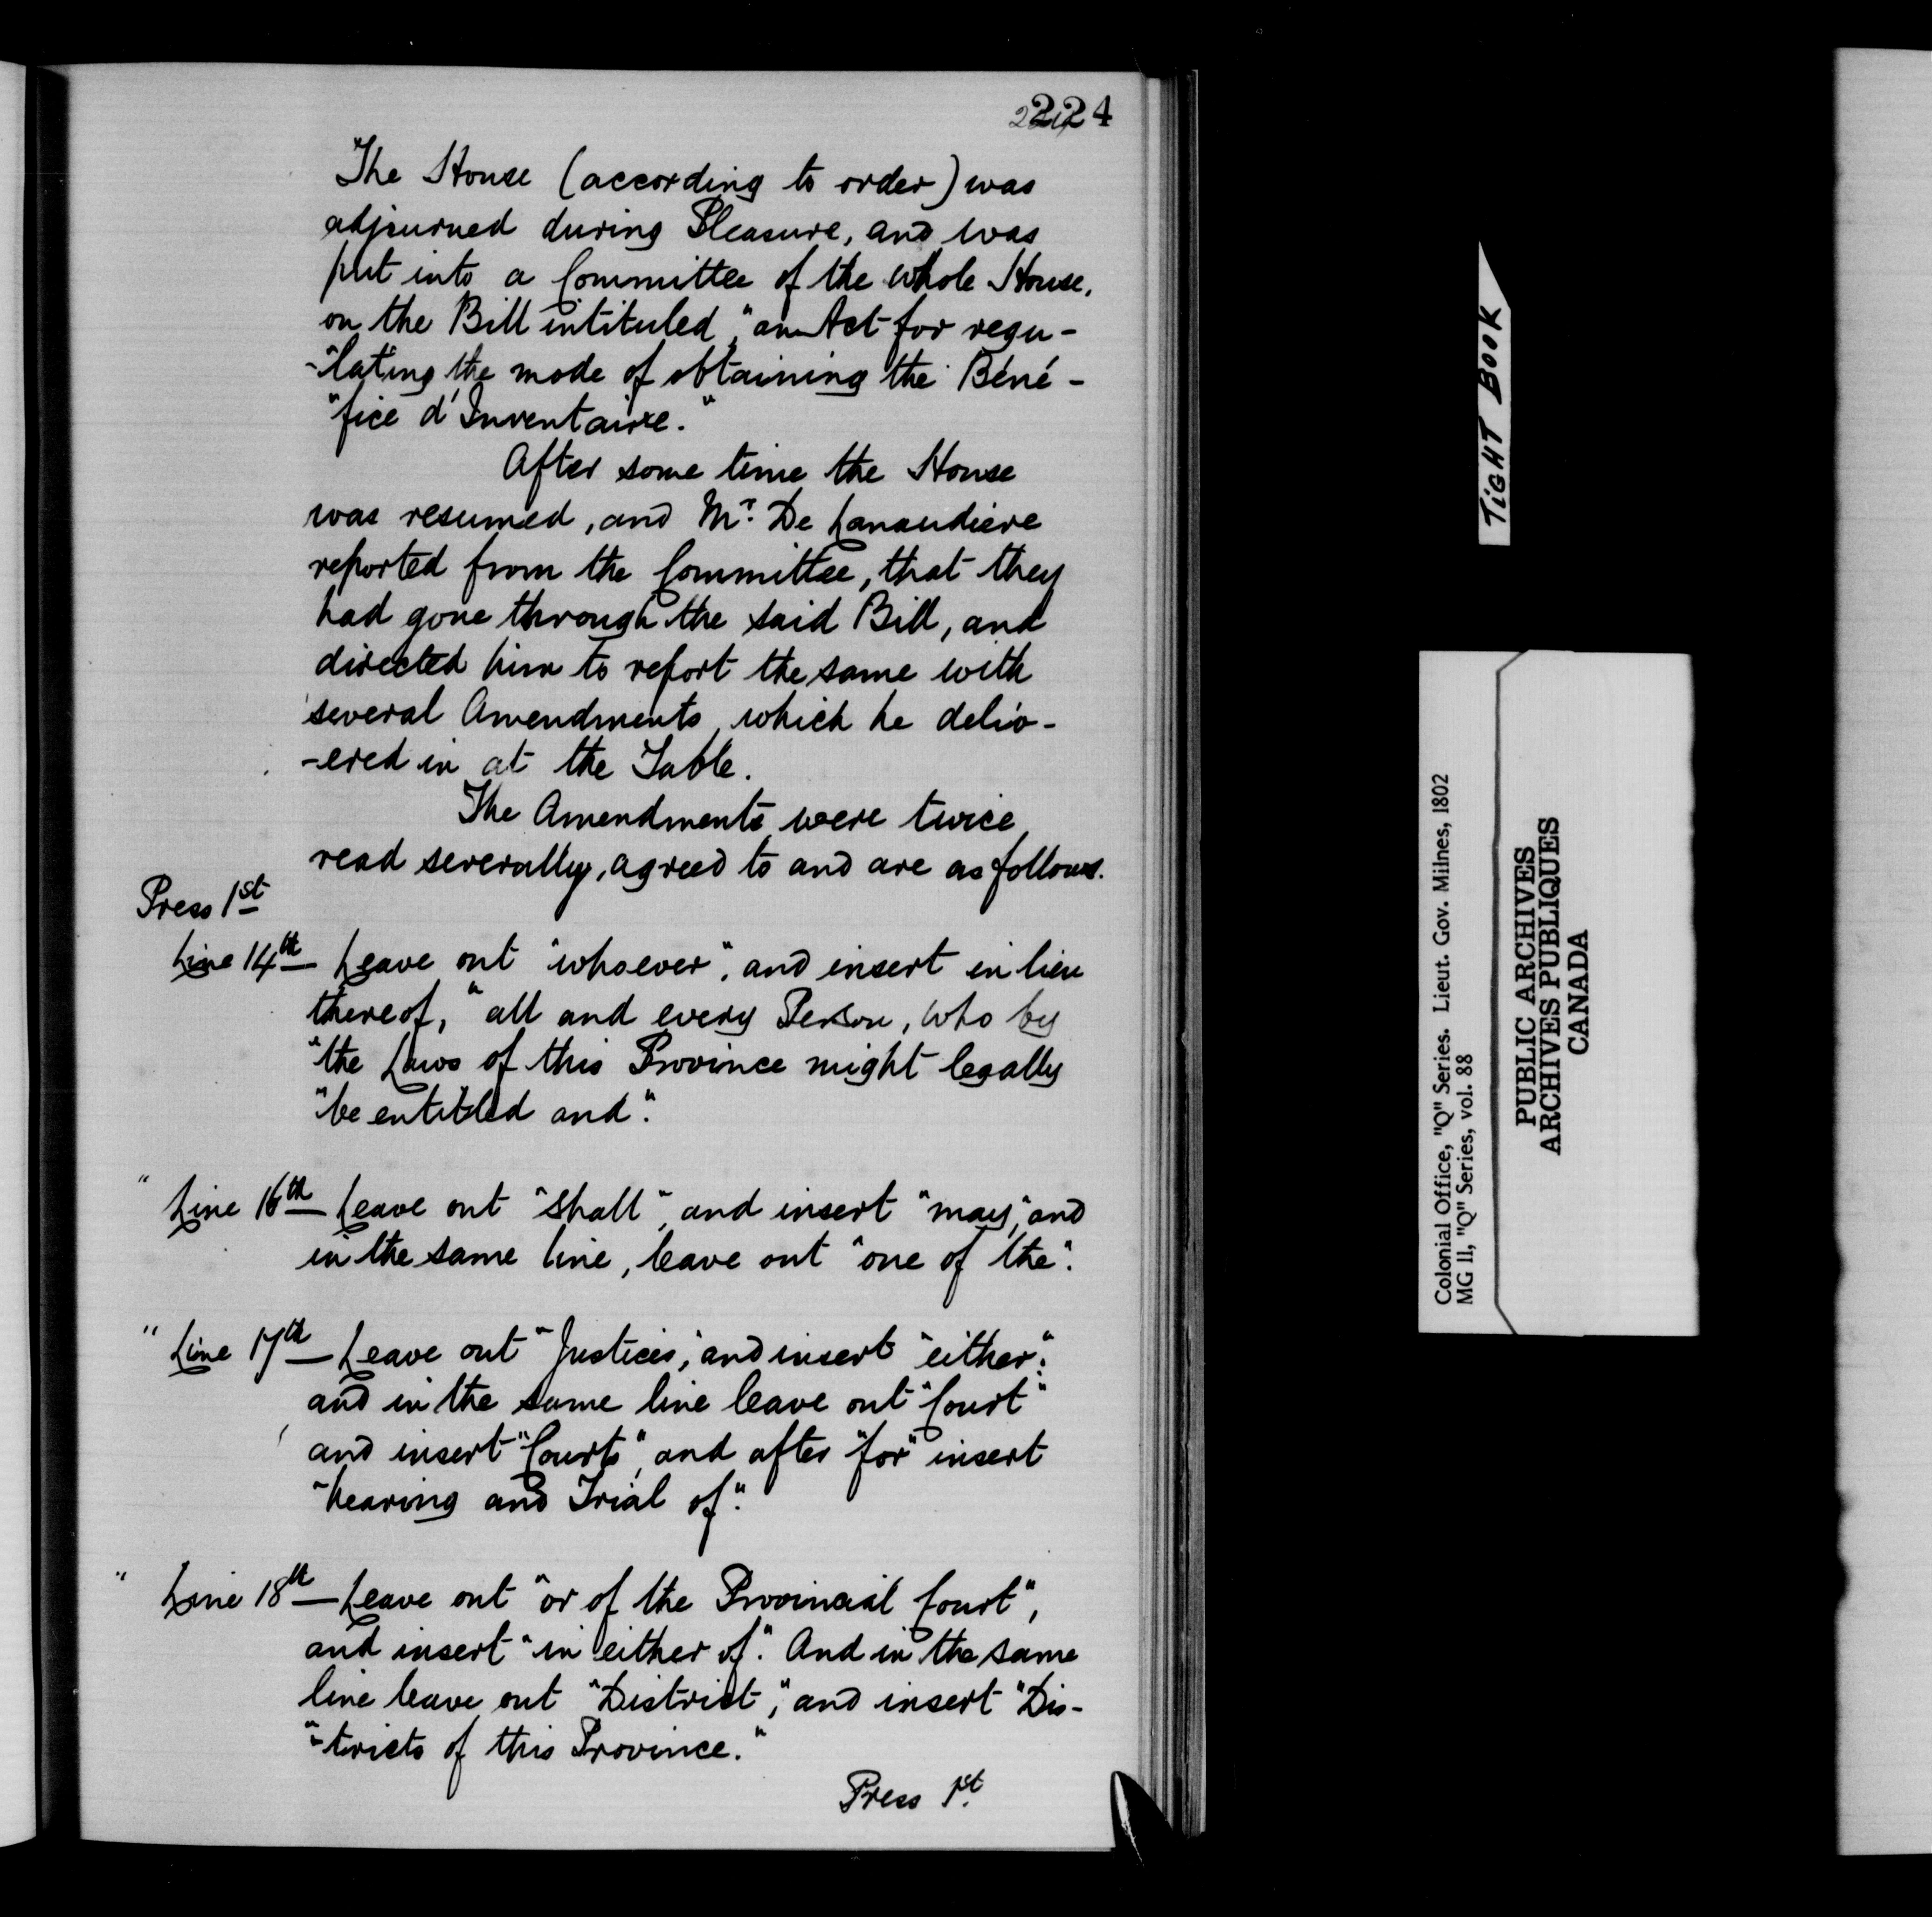 224
The House (according to order) was
adjourned during Pleasure, and was
put into a Committee of the whole House,
on the Bill intituled, "an Act for regu-
-"lating the mode of obtaining the Béné-
"fice d'Inventaire."
After some time the House
was resumed, and Mr. De Lanaudiere
reported from the Committee, that they
had gone through the said Bill, and
directed him to report the same with
several Amendments, which he deliv-
-ered in at the Table.
The Amendments were twice
read severally, agreed to and are as follows.
Press 1st
Line 14th — Leave out "whoever", and insert in lieu
thereof, "all and every Person, who by
"the Laws of this Province might legally
"be entitled and".
" Line 16th — Leave out "shall", and insert "may," and
in the same line, leave out "one of the".
" Line 17th — Leave out "Justices," and insert "either".
and in the same line leave out "Court"
and insert "Courts", and after "for" insert
"hearing and Trial of".
" Line 18th — Leave out "or of the Provincial Court",
and insert "in either of". And in the same
line leave out "District," and insert "Dis-
"-tricts of this Province."
Press 1st.
TIGHT BOOK
Colonial Office, "Q" Series. Lieut. Gov. Milnes, 1802
MG 11, "Q" Series, vol. 88
PUBLIC ARCHIVES
ARCHIVES PUBLIQUES
CANADA